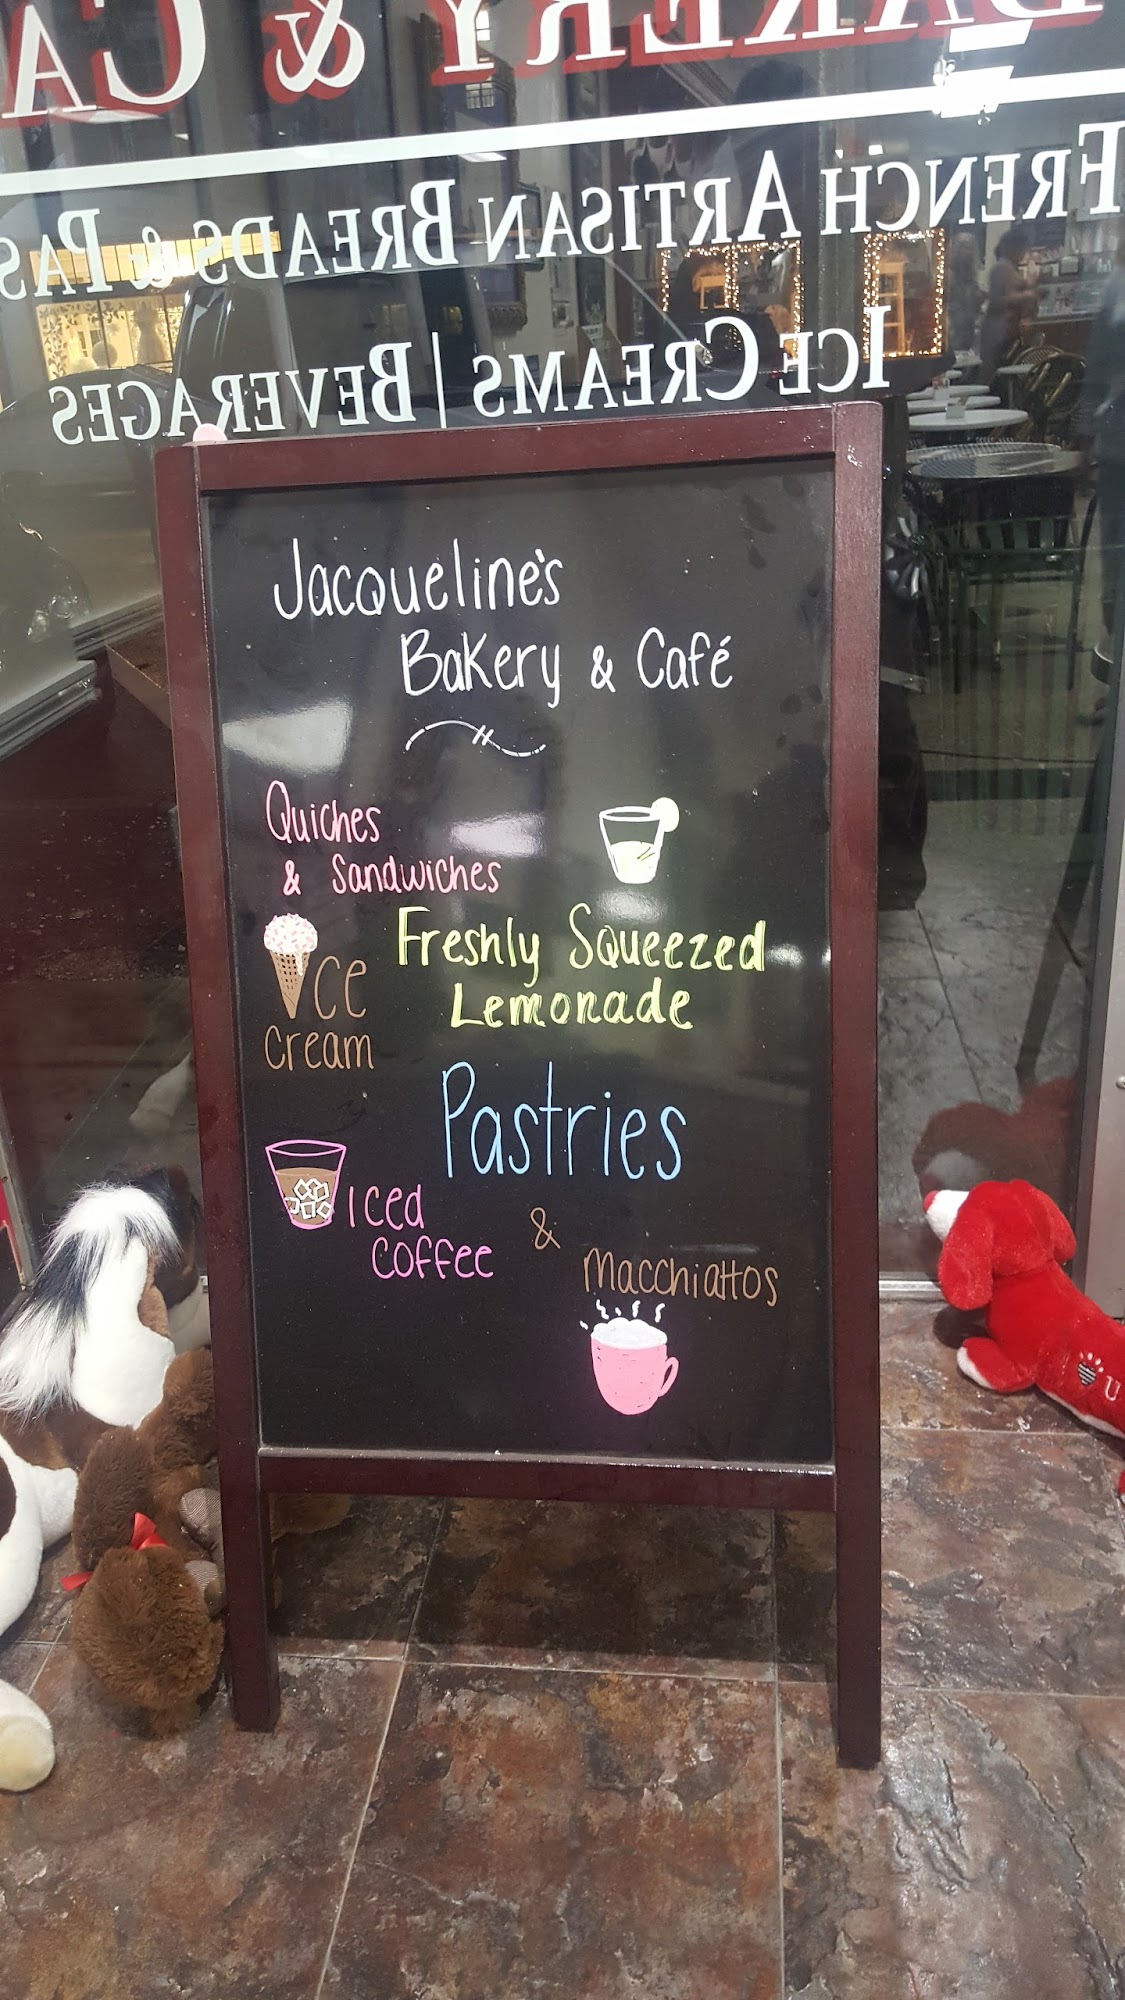 BAKERY & CA
FRENCH ARTISAN BREADS & PAS
ICE CREAMS | BEVERAGES
Jacqueline's
Bakery & Café
Quiches
& Sandwiches
Ice
Cream
Freshly Squeezed
Lemonade
Pastries
Iced
Coffee
&
Macchiattos
U